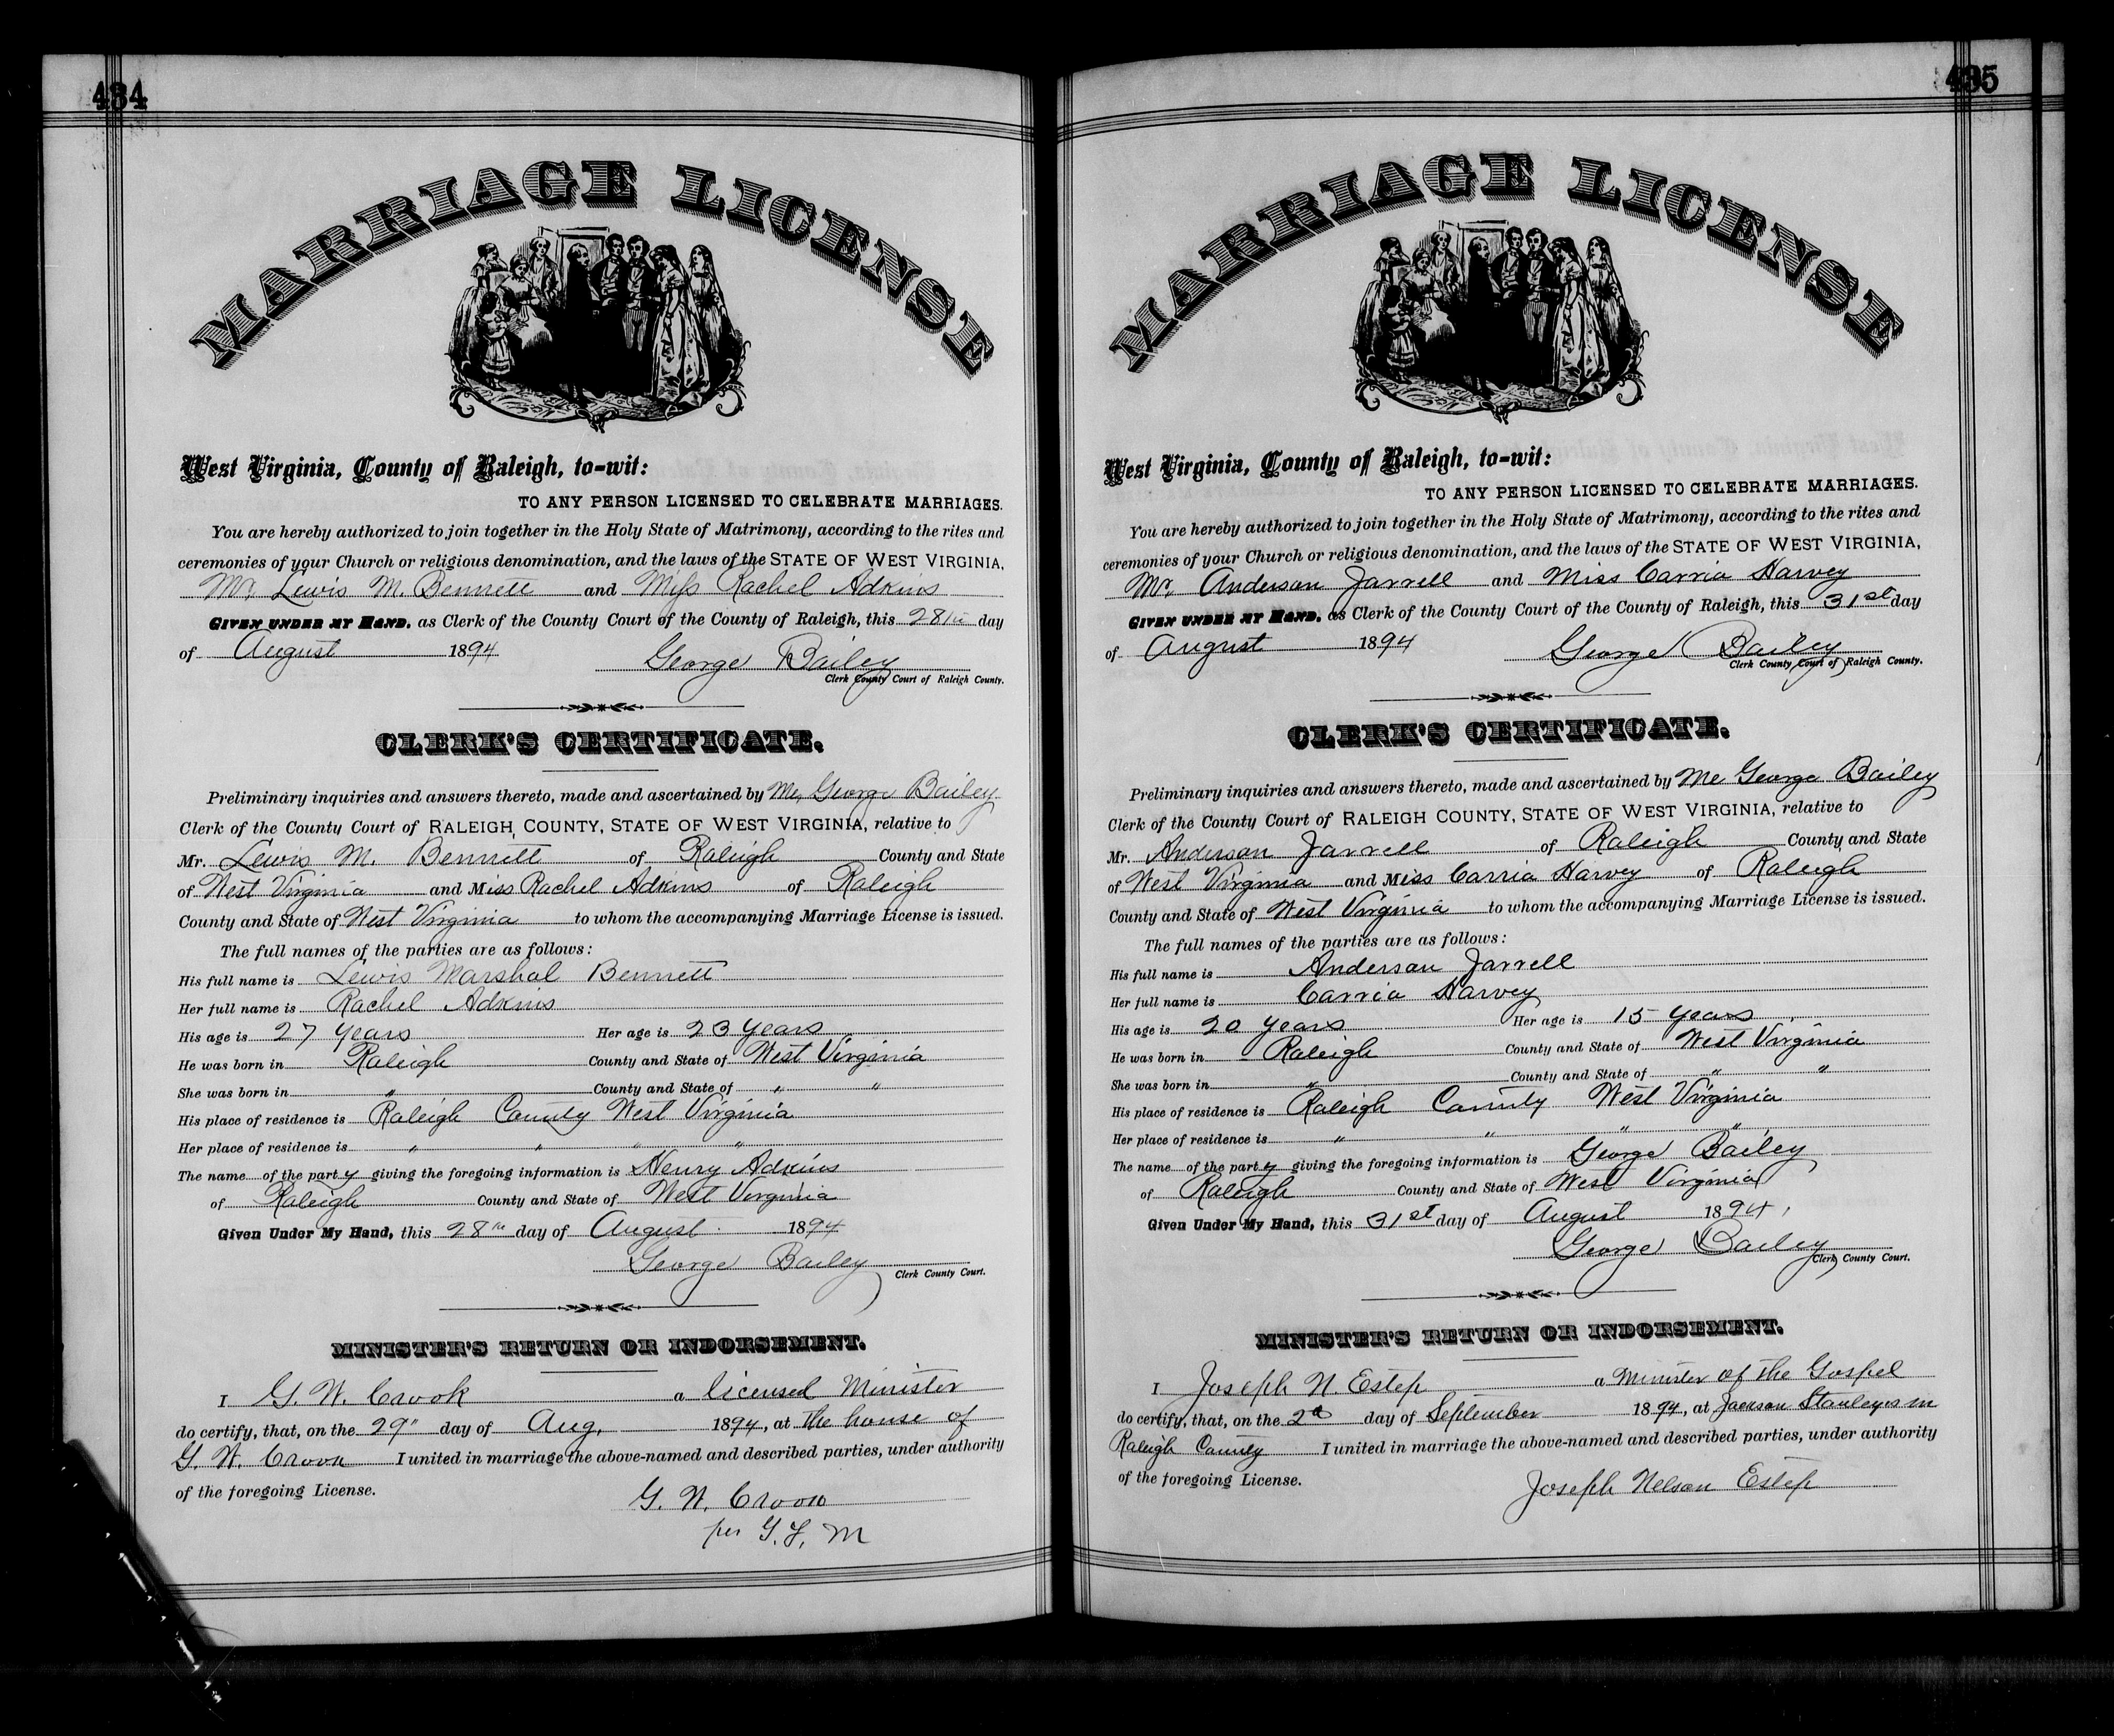 434
MARRIAGE LICENSE
West Virginia, County of Raleigh, to-wit:
TO ANY PERSON LICENSED TO CELEBRATE MARRIAGES.
You are hereby authorized to join together in the Holy State of Matrimony, according to the rites and
ceremonies of your Church or religious denomination, and the laws of the STATE OF WEST VIRGINIA,
Mr. Lewis M. Bennett and Miss Rachel Adkins
GIVEN UNDER MY HAND, as Clerk of the County Court of the County of Raleigh, this 28th day
of August 1894
George Bailey
Clerk County Court of Raleigh County.
CLERK'S CERTIFICATE.
Preliminary inquiries and answers thereto, made and ascertained by Me George Bailey
Clerk of the County Court of RALEIGH COUNTY, STATE OF WEST VIRGINIA, relative to
Mr. Lewis M. Bennett of Raleigh County and State
of West Virginia and Miss Rachel Adkins of Raleigh
County and State of West Virginia to whom the accompanying Marriage License is issued.
The full names of the parties are as follows:
His full name is Lewis Marshal Bennett
Her full name is Rachel Adkins
His age is 27 years Her age is 23 years
He was born in Raleigh County and State of West Virginia
She was born in " County and State of " "
His place of residence is Raleigh County West Virginia
Her place of residence is " " " "
The name of the party giving the foregoing information is Henry Adkins
of Raleigh County and State of West Virginia
Given Under My Hand, this 28th day of August 1894
George Bailey
Clerk County Court.
MINISTER'S RETURN OR INDORSEMENT.
I G. W. Crook a licensed Minister
do certify, that, on the 29" day of Aug, 1894, at the house of
G. W. Crook I united in marriage the above-named and described parties, under authority
of the foregoing License.
G. W. Crook
per G. F. M
435
MARRIAGE LICENSE
West Virginia, County of Raleigh, to-wit:
TO ANY PERSON LICENSED TO CELEBRATE MARRIAGES.
You are hereby authorized to join together in the Holy State of Matrimony, according to the rites and
ceremonies of your Church or religious denomination, and the laws of the STATE OF WEST VIRGINIA,
Mr. Anderson Jarrell and Miss Carria Harvey
GIVEN UNDER MY HAND, as Clerk of the County Court of the County of Raleigh, this 31st day
of August 1894
George Bailey
Clerk County Court of Raleigh County.
CLERK'S CERTIFICATE.
Preliminary inquiries and answers thereto, made and ascertained by Me George Bailey
Clerk of the County Court of RALEIGH COUNTY, STATE OF WEST VIRGINIA, relative to
Mr. Anderson Jarrell of Raleigh County and State
of West Virginia and Miss Carria Harvey of Raleigh
County and State of West Virginia to whom the accompanying Marriage License is issued.
The full names of the parties are as follows:
His full name is Anderson Jarrell
Her full name is Carria Harvey
His age is 20 years Her age is 15 years
He was born in Raleigh County and State of West Virginia
She was born in " County and State of " "
His place of residence is Raleigh County West Virginia
Her place of residence is " " " "
The name of the party giving the foregoing information is George Bailey
of Raleigh County and State of West Virginia
Given Under My Hand, this 31st day of August 1894,
George Bailey
Clerk County Court.
MINISTER'S RETURN OR INDORSEMENT.
I Joseph N. Estep a Minister of the Gospel
do certify, that, on the 2d day of September 1894, at Jackson Stanleyes in
Raleigh County I united in marriage the above-named and described parties, under authority
of the foregoing License.
Joseph Nelson Estep